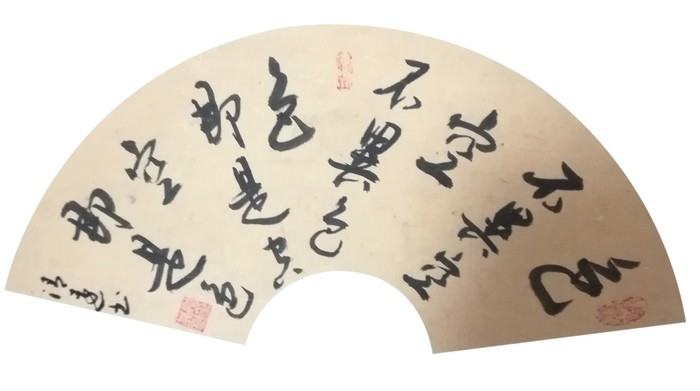 色
不異空
空
不異色
色
即是空
空
即是色